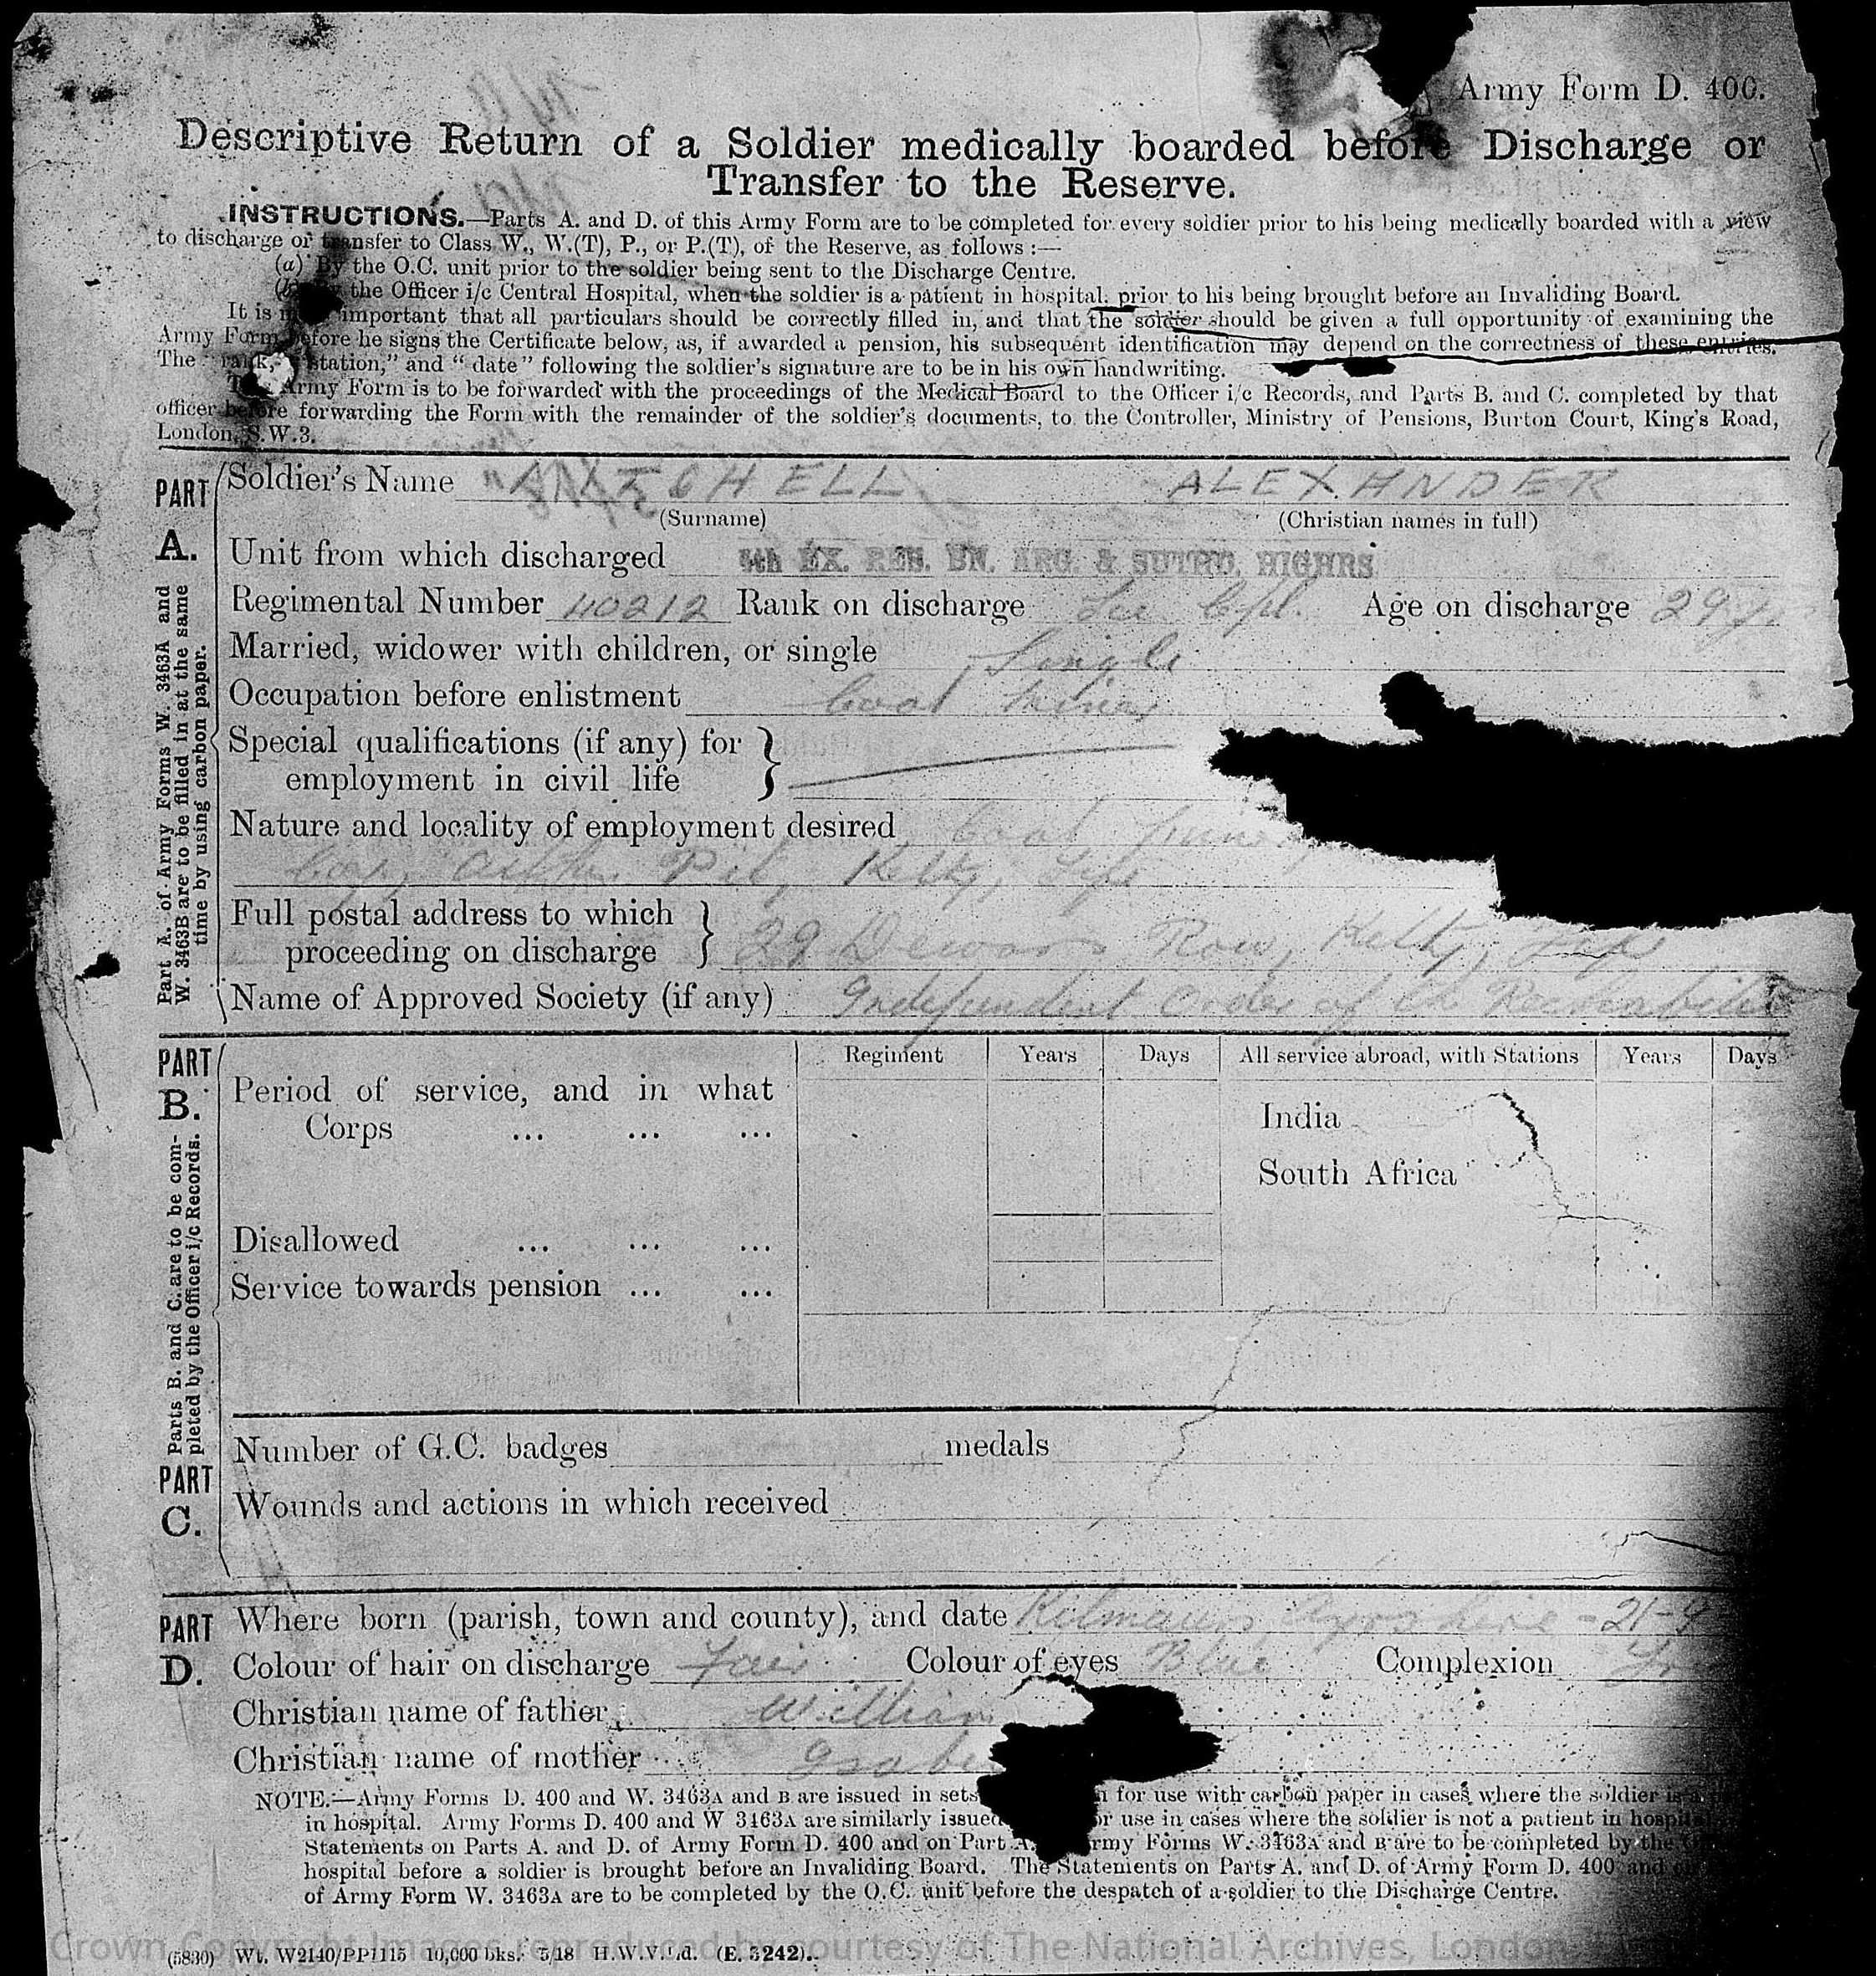 Army Form D. 400.
Descriptive Return of a Soldier medically boarded before Discharge or
Transfer to the Reserve.
INSTRUCTIONS.—Parts A. and D. of this Army Form are to be completed for every soldier prior to his being medically boarded with a view
to discharge or transfer to Class W., W.(T), P., or P.(T), of the Reserve, as follows :—
(a) By the O.C. unit prior to the soldier being sent to the Discharge Centre.
(b) By the Officer i/c Central Hospital, when the soldier is a patient in hospital, prior to his being brought before an Invaliding Board.
It is important that all particulars should be correctly filled in, and that the soldier should be given a full opportunity of examining the
Army Form before he signs the Certificate below, as, if awarded a pension, his subsequent identification may depend on the correctness of these entries.
The "rank," "station," and "date" following the soldier's signature are to be in his own handwriting.
This Army Form is to be forwarded with the proceedings of the Medical Board to the Officer i/c Records, and Parts B. and C. completed by that
officer before forwarding the Form with the remainder of the soldier's documents, to the Controller, Ministry of Pensions, Burton Court, King's Road,
London, S.W.3.
PART A.
Part A. of Army Forms W. 3463A and
W. 3463B are to be filled in at the same
time by using carbon paper.
Soldier's Name ALEXANDER
(Surname) (Christian names in full)
Unit from which discharged EX. RES. BN. ARG. & SUTHD. HIGHRS
Regimental Number 40212 Rank on discharge Cpl. Age on discharge 29
Married, widower with children, or single Single
Occupation before enlistment Coal Miner
Special qualifications (if any) for
employment in civil life
Nature and locality of employment desired Coal
Pit, Kelty, Fife
Full postal address to which
proceeding on discharge 29 Row, Kelty, Fife
Name of Approved Society (if any) Independent Order of Rechabites
PART B.
Parts B. and C. are to be com-
pleted by the Officer i/c Records.
Regiment Years Days All service abroad, with Stations Years Days
Period of service, and in what
Corps ... ... ...
India
South Africa
Disallowed ... ... ...
Service towards pension ... ...
Number of G.C. badges medals
PART C.
Wounds and actions in which received
PART D.
Where born (parish, town and county), and date Kilmaurs, Ayrshire - 21-9
Colour of hair on discharge Fair Colour of eyes Blue Complexion
Christian name of father William
Christian name of mother
NOTE.—Army Forms D. 400 and W. 3463A and B are issued in sets for use with carbon paper in cases where the soldier is a
in hospital. Army Forms D. 400 and W 3463A are similarly issued use in cases where the soldier is not a patient in hospital
Statements on Parts A. and D. of Army Form D. 400 and on Part A. Army Forms W. 3463A and B are to be completed by the
hospital before a soldier is brought before an Invaliding Board. The Statements on Parts A. and D. of Army Form D. 400 and
of Army Form W. 3463A are to be completed by the O.C. unit before the despatch of a soldier to the Discharge Centre.
(5830) Wt. W2140/PP1115 10,000 bks. 5/18 H.W.V. Ld. (E. 3242).
Crown Copyright Images reproduced by courtesy of The National Archives, London